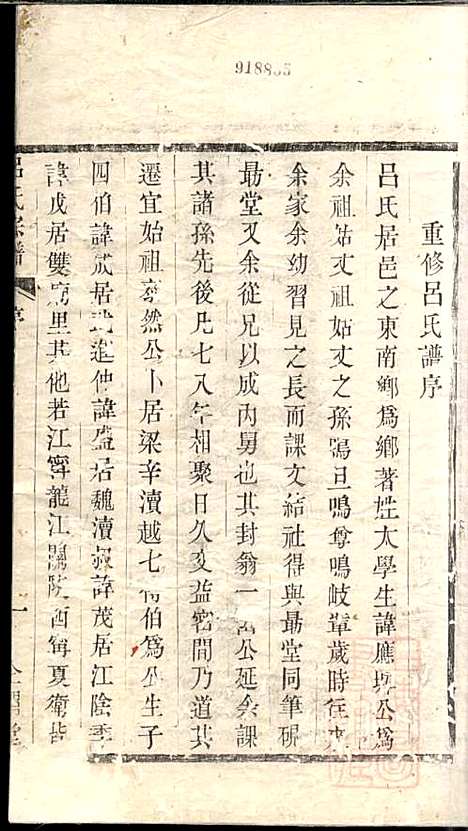 918835
重修呂氏譜序
呂氏居邑之東南鄉爲鄉著姓太學生諱應坤公爲
余祖姑丈祖姑丈之孫鶚旦鳴尊鳴岐輩歲時往來
余家余幼習見之長而課文結社得與勗堂同筆硯
勗堂又余從兄以成內舅也其封翁一 公延余課
其諸孫先後凡七八年相聚日久交益密間乃道其
遷宜始祖 然公卜居梁辛瀆越七 伯爲公生子
四伯諱成居武進仲諱盛居魏瀆叔諱茂居江陰季
諱戊居雙廟里其他若江寧龍江關陝西寧夏衛皆
呂氏宗譜
序
一